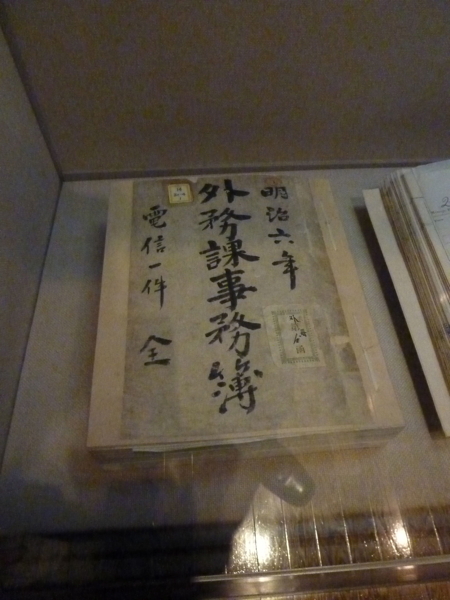 明治六年
外務課事務簿
電信一件 全